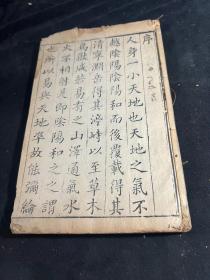 序
人身一小天地也天地之氣不
越陰陽陰陽和而後覆載得其
清寧淵岳得其渟峙以至草木
鳥獸咸若易有之山澤通氣水
火不相射是即陰陽和之之謂
也所以易與天地準故能彌綸